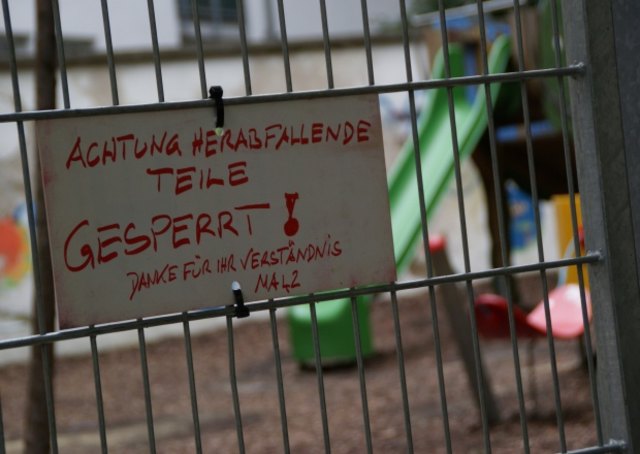 ACHTUNG HERABFALLENDE
TEILE
GESPERRT!
DANKE FÜR IHR VERSTÄNDNIS
MA42